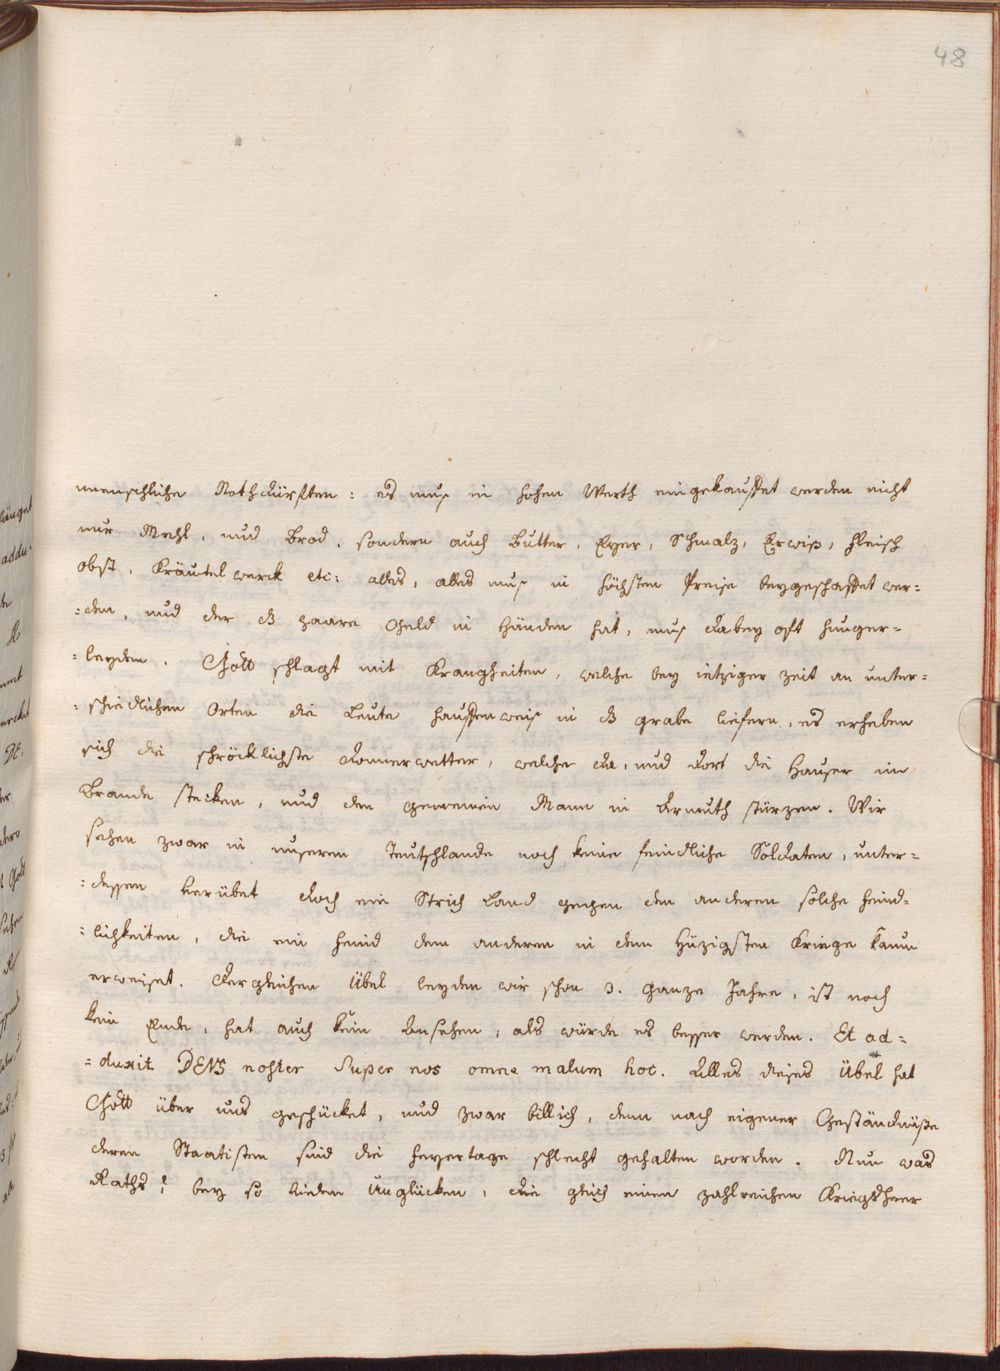 48
menschliche Nothdürften: es muß in hohen Werth eingekauffet werden nicht
nur Mehl, und Brod, sondern auch Butter, Eyer, Schmalz, Erwiß, fleisch
obst, Kräutelwerck etc: alles, alles muß in höchsten Preise beygeschaffet wer=
=den, und der dz paare Geld in Händen hat, muß dabey oft hunger=
=leyden. Gott schlagt mit Krangheiten, welche bey ietziger zeit an unter=
=schiedlichen Orten die Leute hauffenweiß in dz grabe liefern, es erheben
sich die schröcklichste donnerwetter, welche da, und dort die Hauser im
Brande stecken, und den gemeinen Mann in Armuth stürzen. Wir
sehen zwar in unserem Teutschlande noch keine feindliche Soldaten, unter=
=dessen verübet doch ein Strich Land gegen den anderen solche feind=
=lichkeiten, die ein feind dem anderen in dem hüzigsten Kriege kaum
erweiset. dergleichen Übel leyden wir schon 3. ganze Jahre, ist noch
kein Ende, hat auch kein Ansehen, als würde es besser werden. Et ad=
=duxit DEUS noster super nos omne malum hoc. Alles dieses Übel hat
Gott über uns geschücket, und zwar billich, denn nach eigener Geständnüße
deren Staatisten sind die feyertage schlecht gehalten worden. Nun was
Raths? bey so vielen Unglücken, die gleich einen zahlreichen Kriegsheer